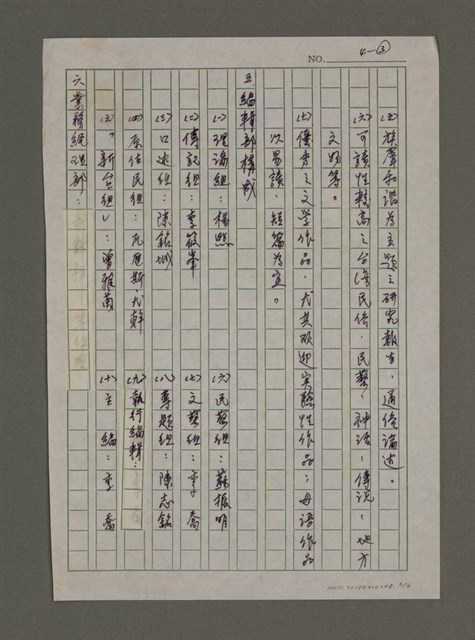 NO. 4-③
(五)族羣和諧為主題之研究報告，通俗論述。
(六)可讀性較高之台灣民俗、民藝、神話、傳說、地方
文明等。
(七)優秀之文學作品，尤其歡迎實驗性作品；母語作品
以易讀，短篇為宜。
五編輯部構成
(一)理論組：楊照　(六)民藝組：蘇振明
(二)傳說組：李筱峯　(七)文藝組：李　喬
(三)口述組：陳銘城　(八)專題組：陳志銘
(四)原住民組：瓦歷斯·尤幹　(九)執行編輯：
(五)「新台組」：曾雅蘭　(十)主　編：李　喬
六業務總理部：